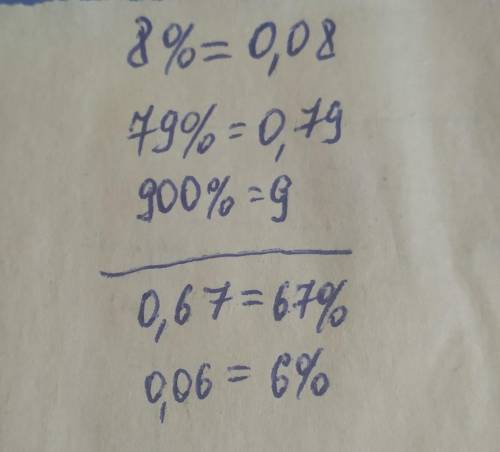 8% = 0,08
79% = 0,79
900% = 9
0,67 = 67%
0,06 = 6%